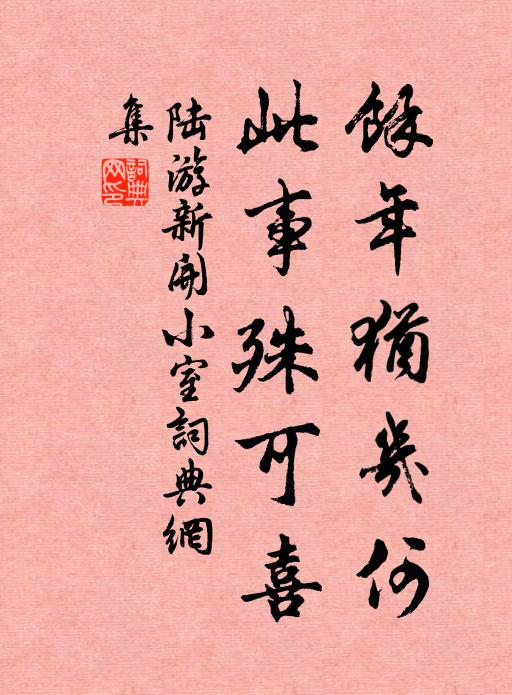 餘年猶幾何
此事殊可喜
陸游新開小室詞典網
集
詞典網印